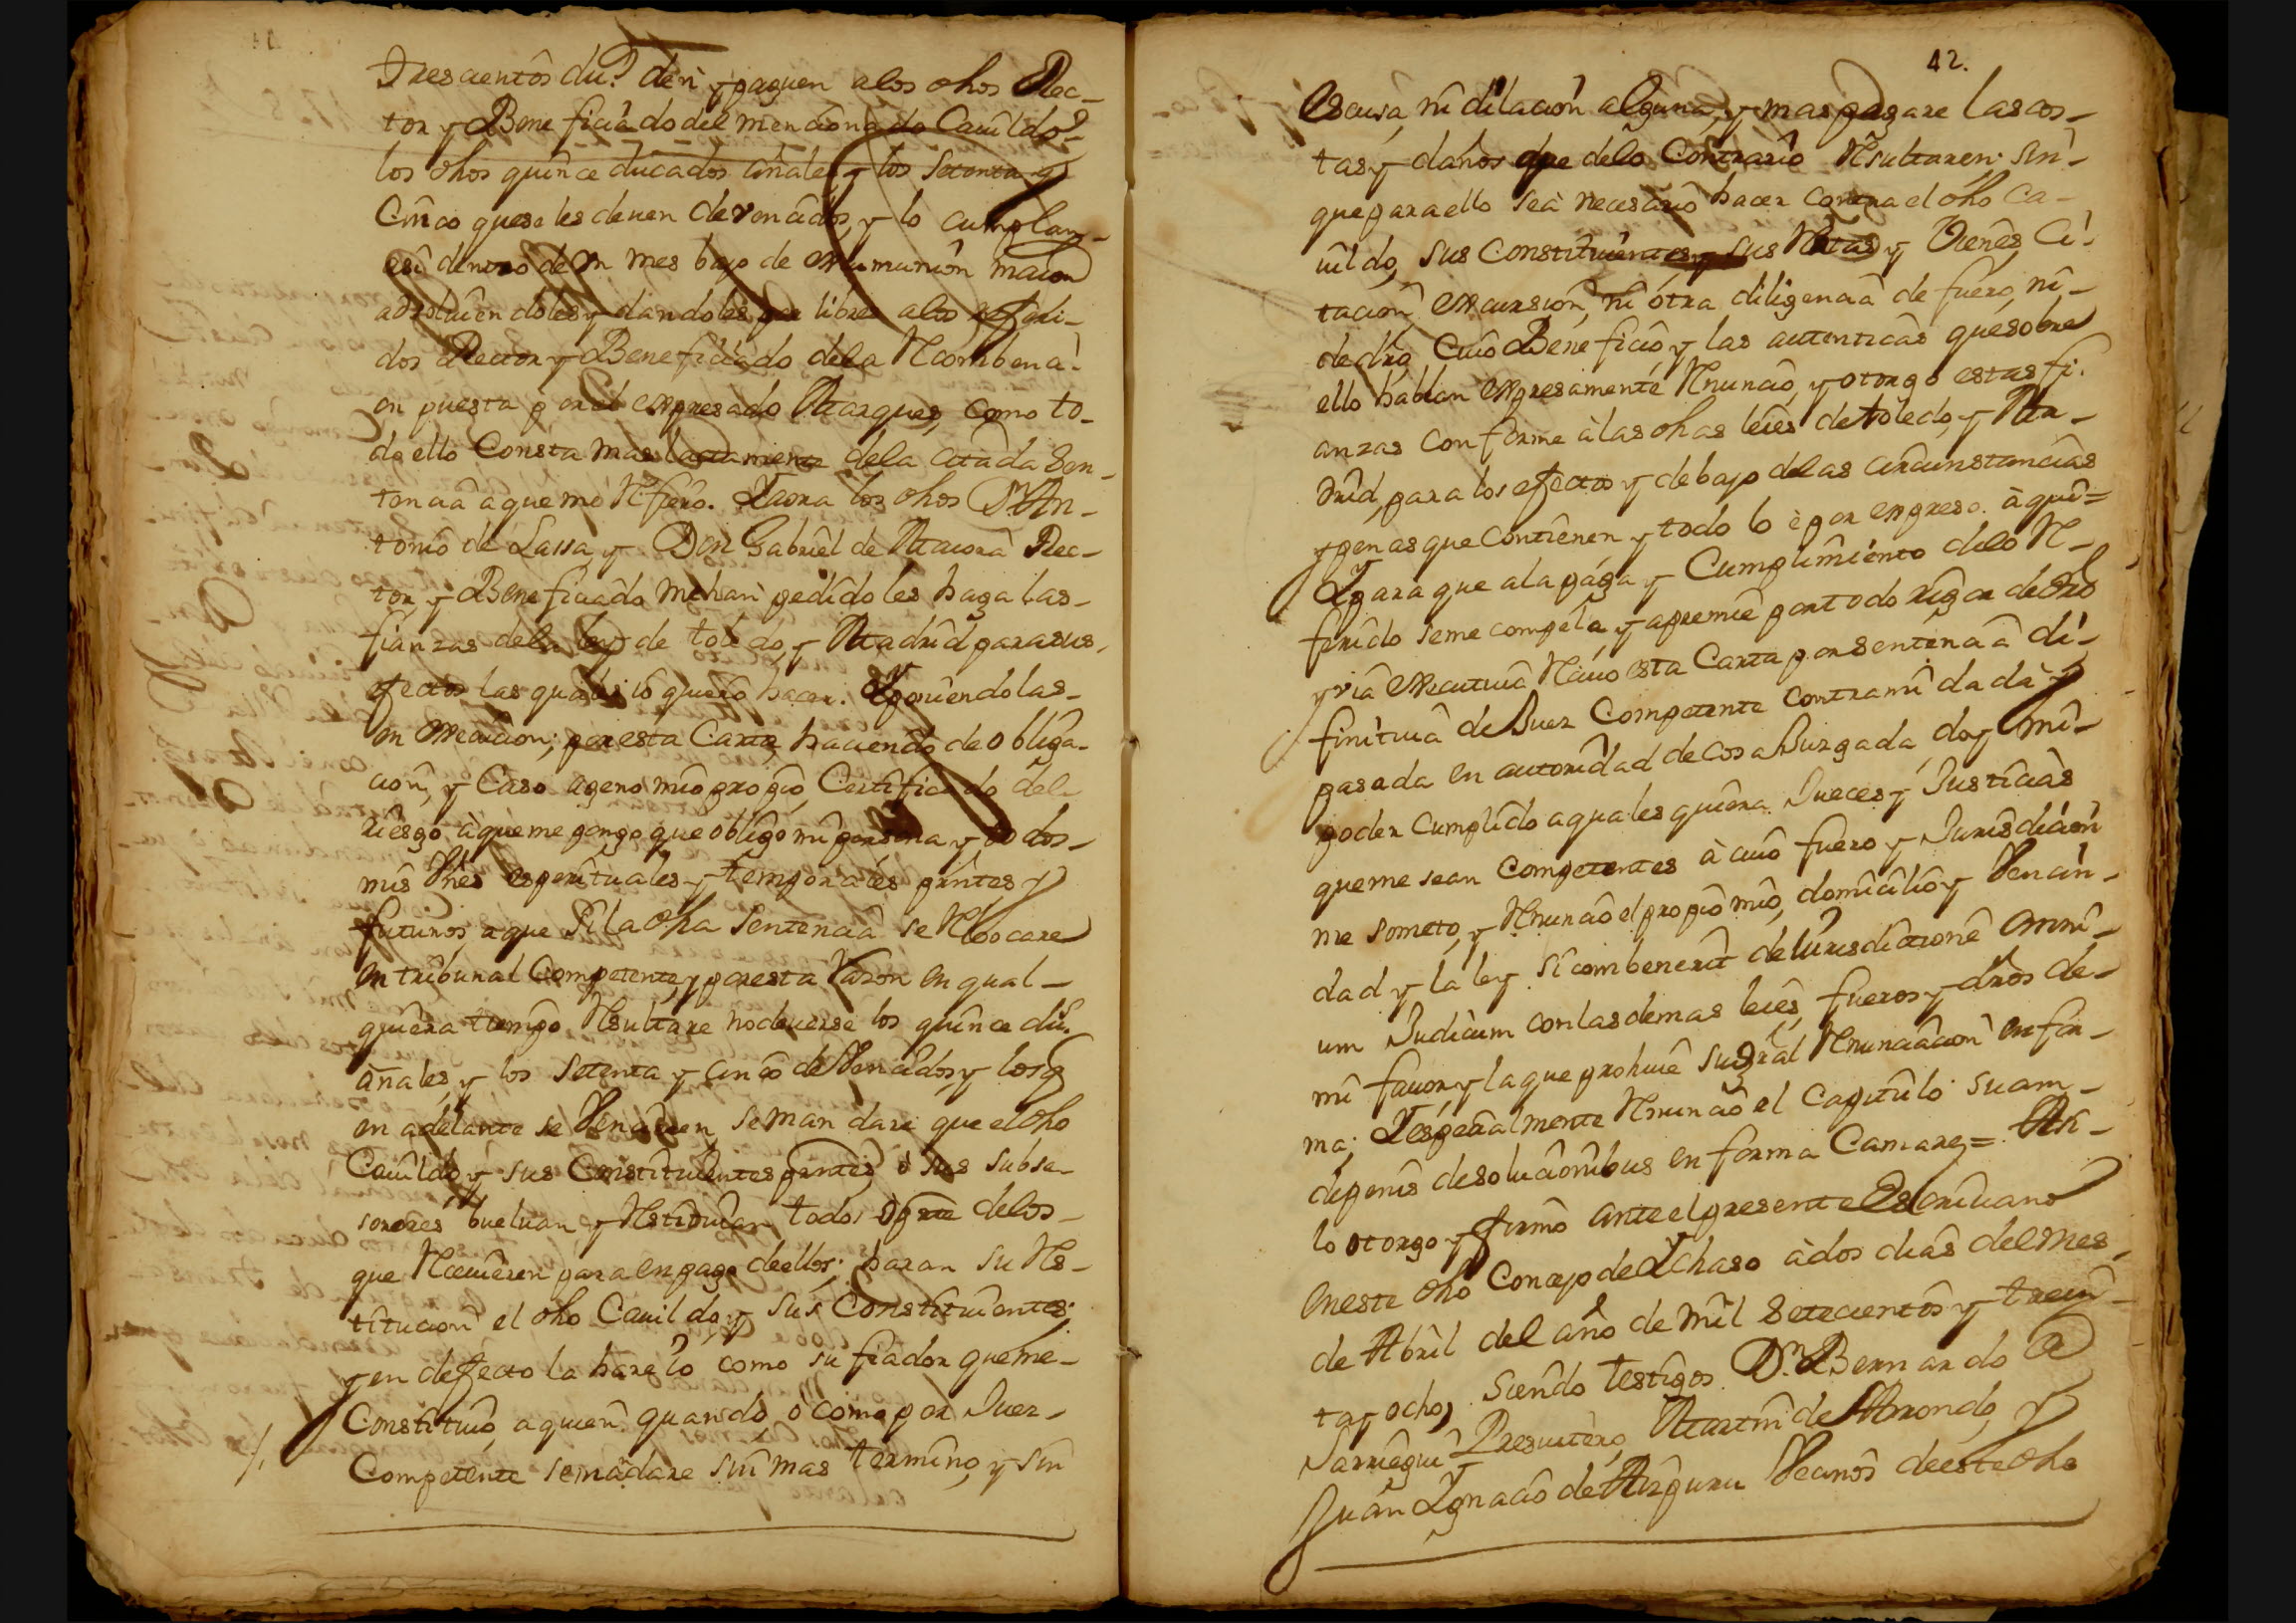 Trescientos du.s den y paguen a los dhos Rec-
tor y Beneficiado del mencionado Cauildo
los dhos quince ducados añales y los setenta y
Cinco que se les deuen devencidos, y lo cumplan
asi dentro de un mes bajo de excumunion maior
absoluiendoles y dandoles por libres a los referi-
dos Rector y Beneficiado dela Recombenci-
on puesta por el expresado Marques, como to-
do ello Consta mas lactamente dela citada Sen-
tencia a que me Refiero. Y aora los dhos Dn An-
tonio de Lassa, y Don Gabriel de Maiora Rec-
tor y Beneficiado mehan pedido les haga las
fianzas dela ley de toledo, y Madrid para sus
efectos las quales io quiero hacer. Y poniendolas
en execucion; por esta Carta haciendo de obliga-
cion, y Caso ageno mio propio Certificado del
riesgo à que me pongo que obligo mi persona y todos
mis Vnes espirituales y temporales pntes y
futuros, a que si la dha Sentencia se Rebocare
en tribunal Competente, y por esta razon en qual-
quiera tiempo Resultare no deuerse los quince du.s
añales, y los setenta y cinco de Vencidos y los q
en adelante se Vencieren, se mandare que el dho
Cauildo y sus Constituientes pntes ò sus subse-
sores bueluan y Restituian todos ò parte delos
que Reciuieren para en pago deellos; haran su Res-
titucion el dho Cauildo, y sus Constituientes,
y en defecto la hare io como su fiador que me
Constituio, a quien quando ò como por Juez
Competente se mandare sin mas termino, y sin
42.
escusa, ni dilacion alguna, y mas pagare las cos-
tas y daños que delo Contrario Resultaren sin
que para ello sea necesario hacer contra el dho Ca-
uildo, sus Constituientes y sus Rentas y Vienes, Ci-
tacion excursion, ni otra diligencia de fuero, ni
de dro, Cuio Beneficio y las autenticas que sobre
ello hablan expresamente Renuncio, y otorgo estas fi-
anzas conforme à las dhas leies de toledo, y Ma-
drid, para los efectos y debajo delas circunstancias
y penas que Contienen y todo lo è por expreso aqui=
Y para que ala paga y Cumplimiento delo Re-
ferido se me compela y apremie por todo rigor de dro
y via executiua Reciuo esta Carta por sentencia di-
finitiua de Juez Competente contra mi dada y
pasada en autoridad de cosa Juzgada, doy mi
poder cumplido a quales quiera Jueces y Justicias
que me sean Competentes à cuio fuero y Jurisdicion
me someto, y Renuncio el propio mio, domicilio y Vecin-
dad y la ley si combenerit de Iurisdictione omni-
um Judicum con las demas leies, fueros y dros de
mi fauor y la que prohiue su gral Renunciacion en for-
ma; Y especialmente Renuncio el Capitulo suam
depenis desolucionibus en forma Camare = Asi
lo otorgo y firmo ante el presente Escriuano
en este dho Concejo de Ychaso à dos dias del mes
de Abril del año de mil setecientos y trein-
ta y ocho, siendo testigos Dn Bernardo de
Jauregui Presuitero, Martin de Arrondo, y
Juan Ygnacio de Aizpuru Vecinos de este dho